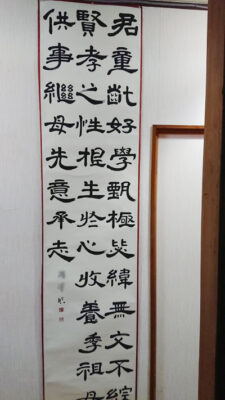 君童齔好學甄極毖緯無文不綜
賢孝之性根生於心收養季祖母
供事繼母先意承志